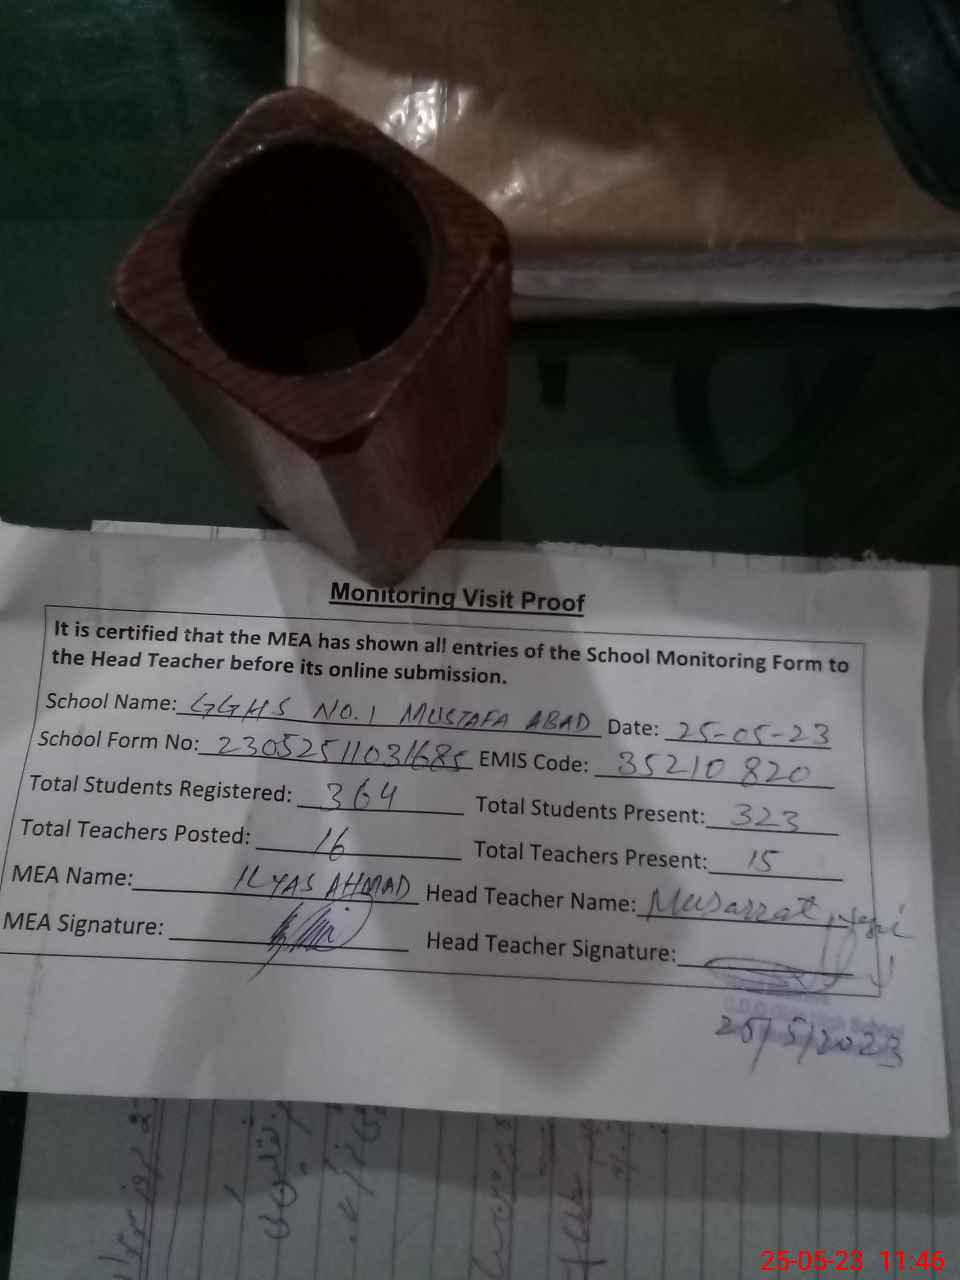 Monitoring Visit Proof
It is certified that the MEA has shown all entries of the School Monitoring Form to
the Head Teacher before its online submission.
School Name: GGHS NO.1 MUSTAFA ABAD Date: 25-05-23
School Form No: 23052511031685 EMIS Code: 35210820
Total Students Registered: 364 Total Students Present: 323
Total Teachers Posted: 16 Total Teachers Present: 15
MEA Name: ILYAS AHMAD Head Teacher Name: Musarrat
MEA Signature: Head Teacher Signature:
High School
25/5/2023
25-05-23 11:46